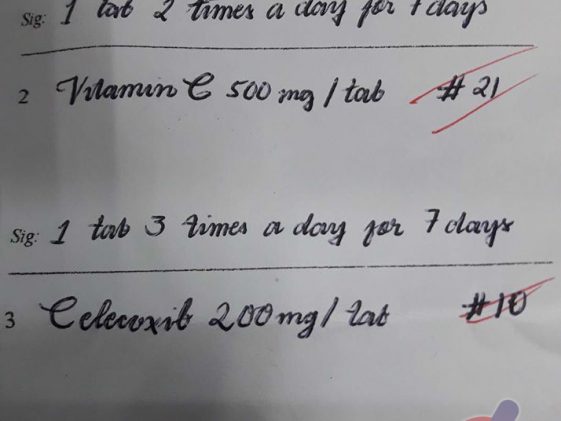 Sig: 1 tab 2 times a day for 7 days
2 Vitamin C 500 mg / tab #21
Sig: 1 tab 3 times a day for 7 days
3 Celecoxib 200 mg / tab #10